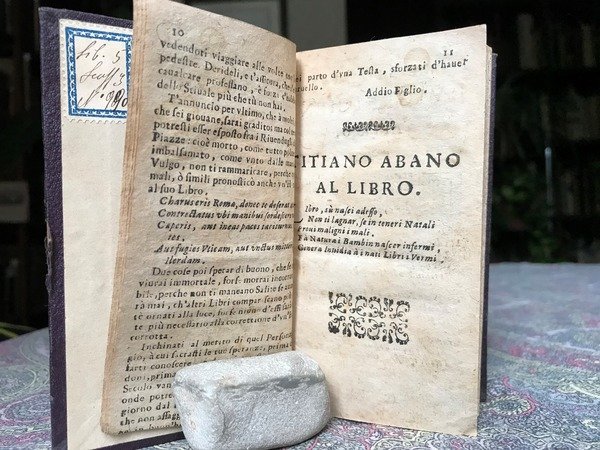 Lib. 5
Scaff. 3
N.° 990
10
vedendori viaggiare alle volte
pedestre. Derideli, e t'assicura, che
caualcare professano, è forza d'
dello Stiuale più che tù non hai.
T'annuncio per vltimo, che
che sei giouane, sarai gradito; ma col
potresti esser esposto frà i Riuendug
Piazze: cioè morto, come tutto p
imbalsamato, come voto dalle
Vulgo, non ti rammaricare, perche
mali, ò simili pronosticò anche vn
al suo Libro.
Charus eris Roma, donec te deserat
Contrectatus vbi manibus sordescere
Caperis, aut ineas pasces taciturnus
tes.
Aut fugies Vticam, aut vnctus mitter
Ilerdam.
Due cose poi sperar di buono, che
viurai immortale, forse morrai
bile, perche non ti mancano Saluste
rà mai, ch'altri Libri comparsano
te ornati alla luce, forse
te più necessatio alla correttione d'vn
corrotta.
Inchinati al merito di quel Person
gio, à cui
farte conoscere
doni, prima
Secolo van
onde potre
giorno dal
che non assagg
11
ei parto d'vna Testa, sforzati d'hauer
ruello.
Addio Figlio.
TITIANO ABANO
AL LIBRO.
Ibro, sù nasci adesso,
Non ti lagnar, se in teneri Natali
Prouimaligni i mali.
Fà Natura i Bambin nascer infermi,
Genera Inuidia à i nati Libri i Vermi.